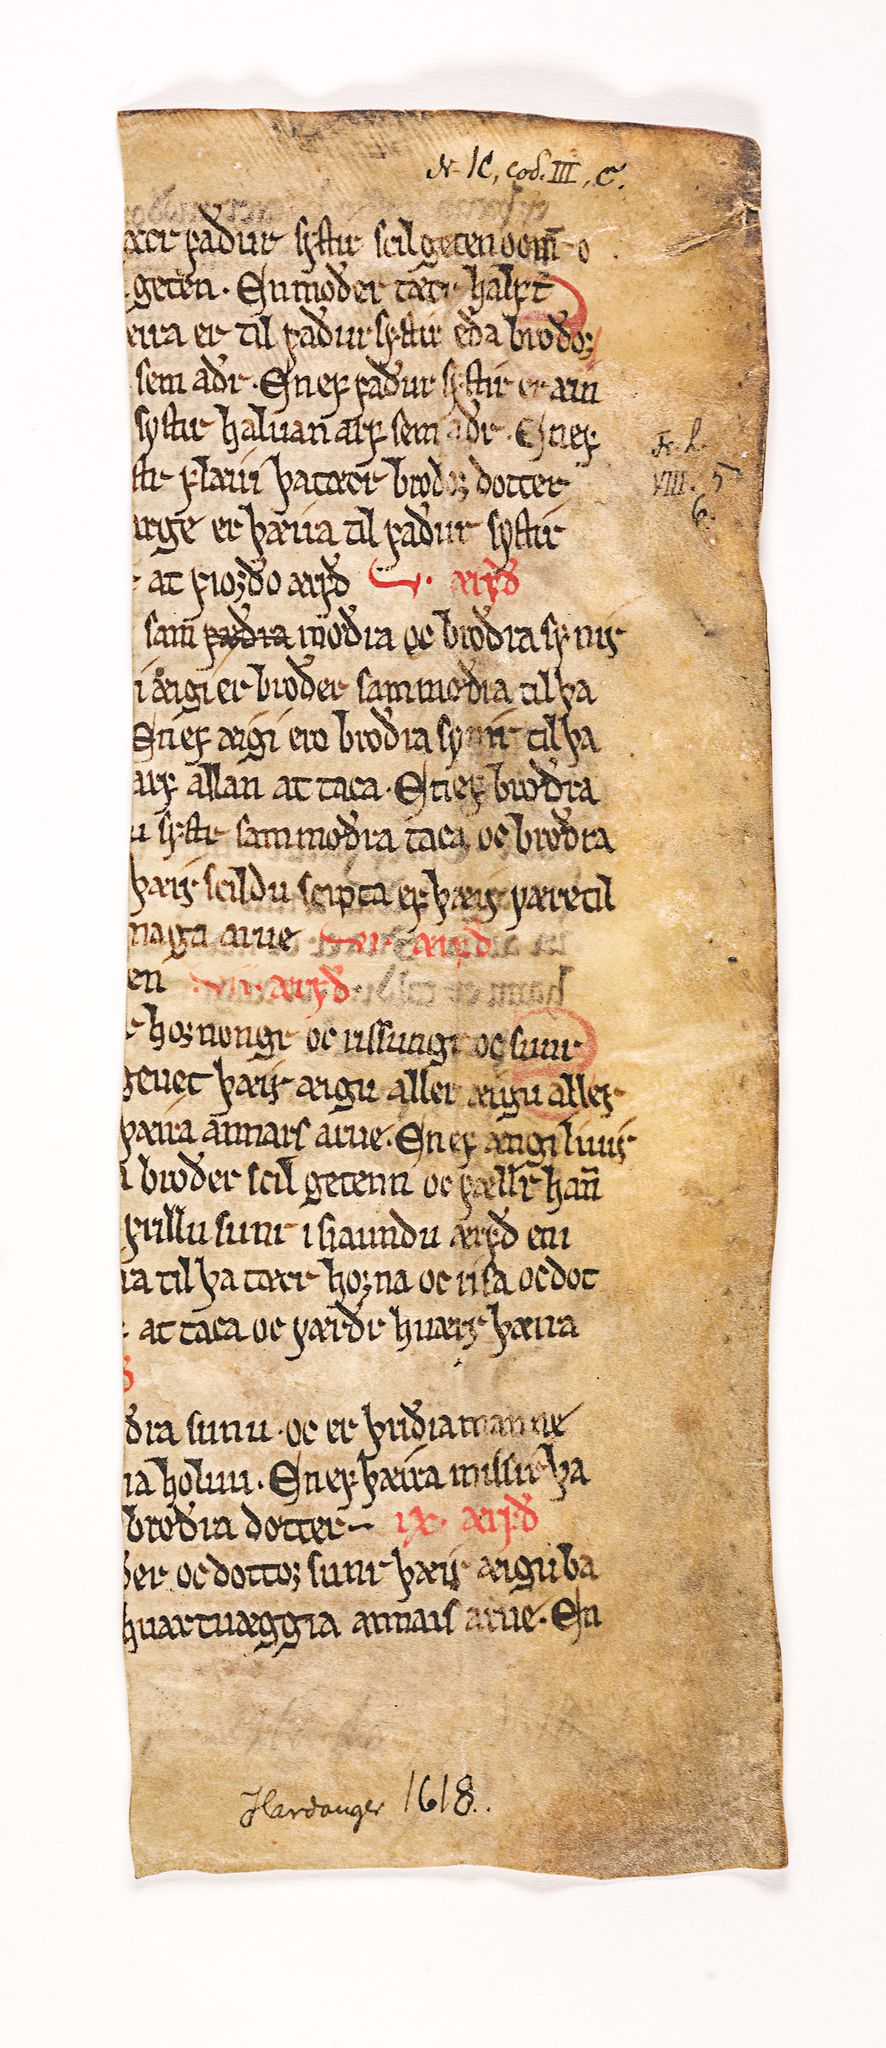 N. 1C, cod. III, C.
tæcr faður systir scilgeten oc om o
geten. En moðer tæcr halft
æira er til faður systir eða broðoꝛ
sem aðr. En ef faður systir er æin
systir haluan arf sem aðr. En ef
stir flæiri þa tæcr broðoꝛ dotter
arge er þæira til faður systir
at fioꝛðo ærfð V. ærfð
sam fæðra mœðra oc brœðra synir
i æigi er broðer sammœðra til þa
En ef æigi ero brœðra synir til þa
arf allan at taca. En ef brœðra
u systir sammœðra taca oc brœðra
þæir scildu scipta ef þæir være til
naga arue VI. ærfð
en VII. ærfð
hoꝛnongr oc rissungr oc sunr
geuet þæir æigu aller æigu aller
þæira annars arue. En ef ængi liuir
broðer scil getenn oc fællr hañ
frillu sunr i siaundu ærfð en
ra til þa tæcr hoꝛna oc risa oc dot
at taca oc værðr huærr þæira
ðra sunu. oc er þriðia manne
na holuu. En ef þæira missir þa
brœðra dotter IX. ærfð
ðer oc dottoꝛ sunr þæir æigu ba
huartuæggia annars arue. En
Fr. L.
VIII. 5
6.
Hardanger 1618.